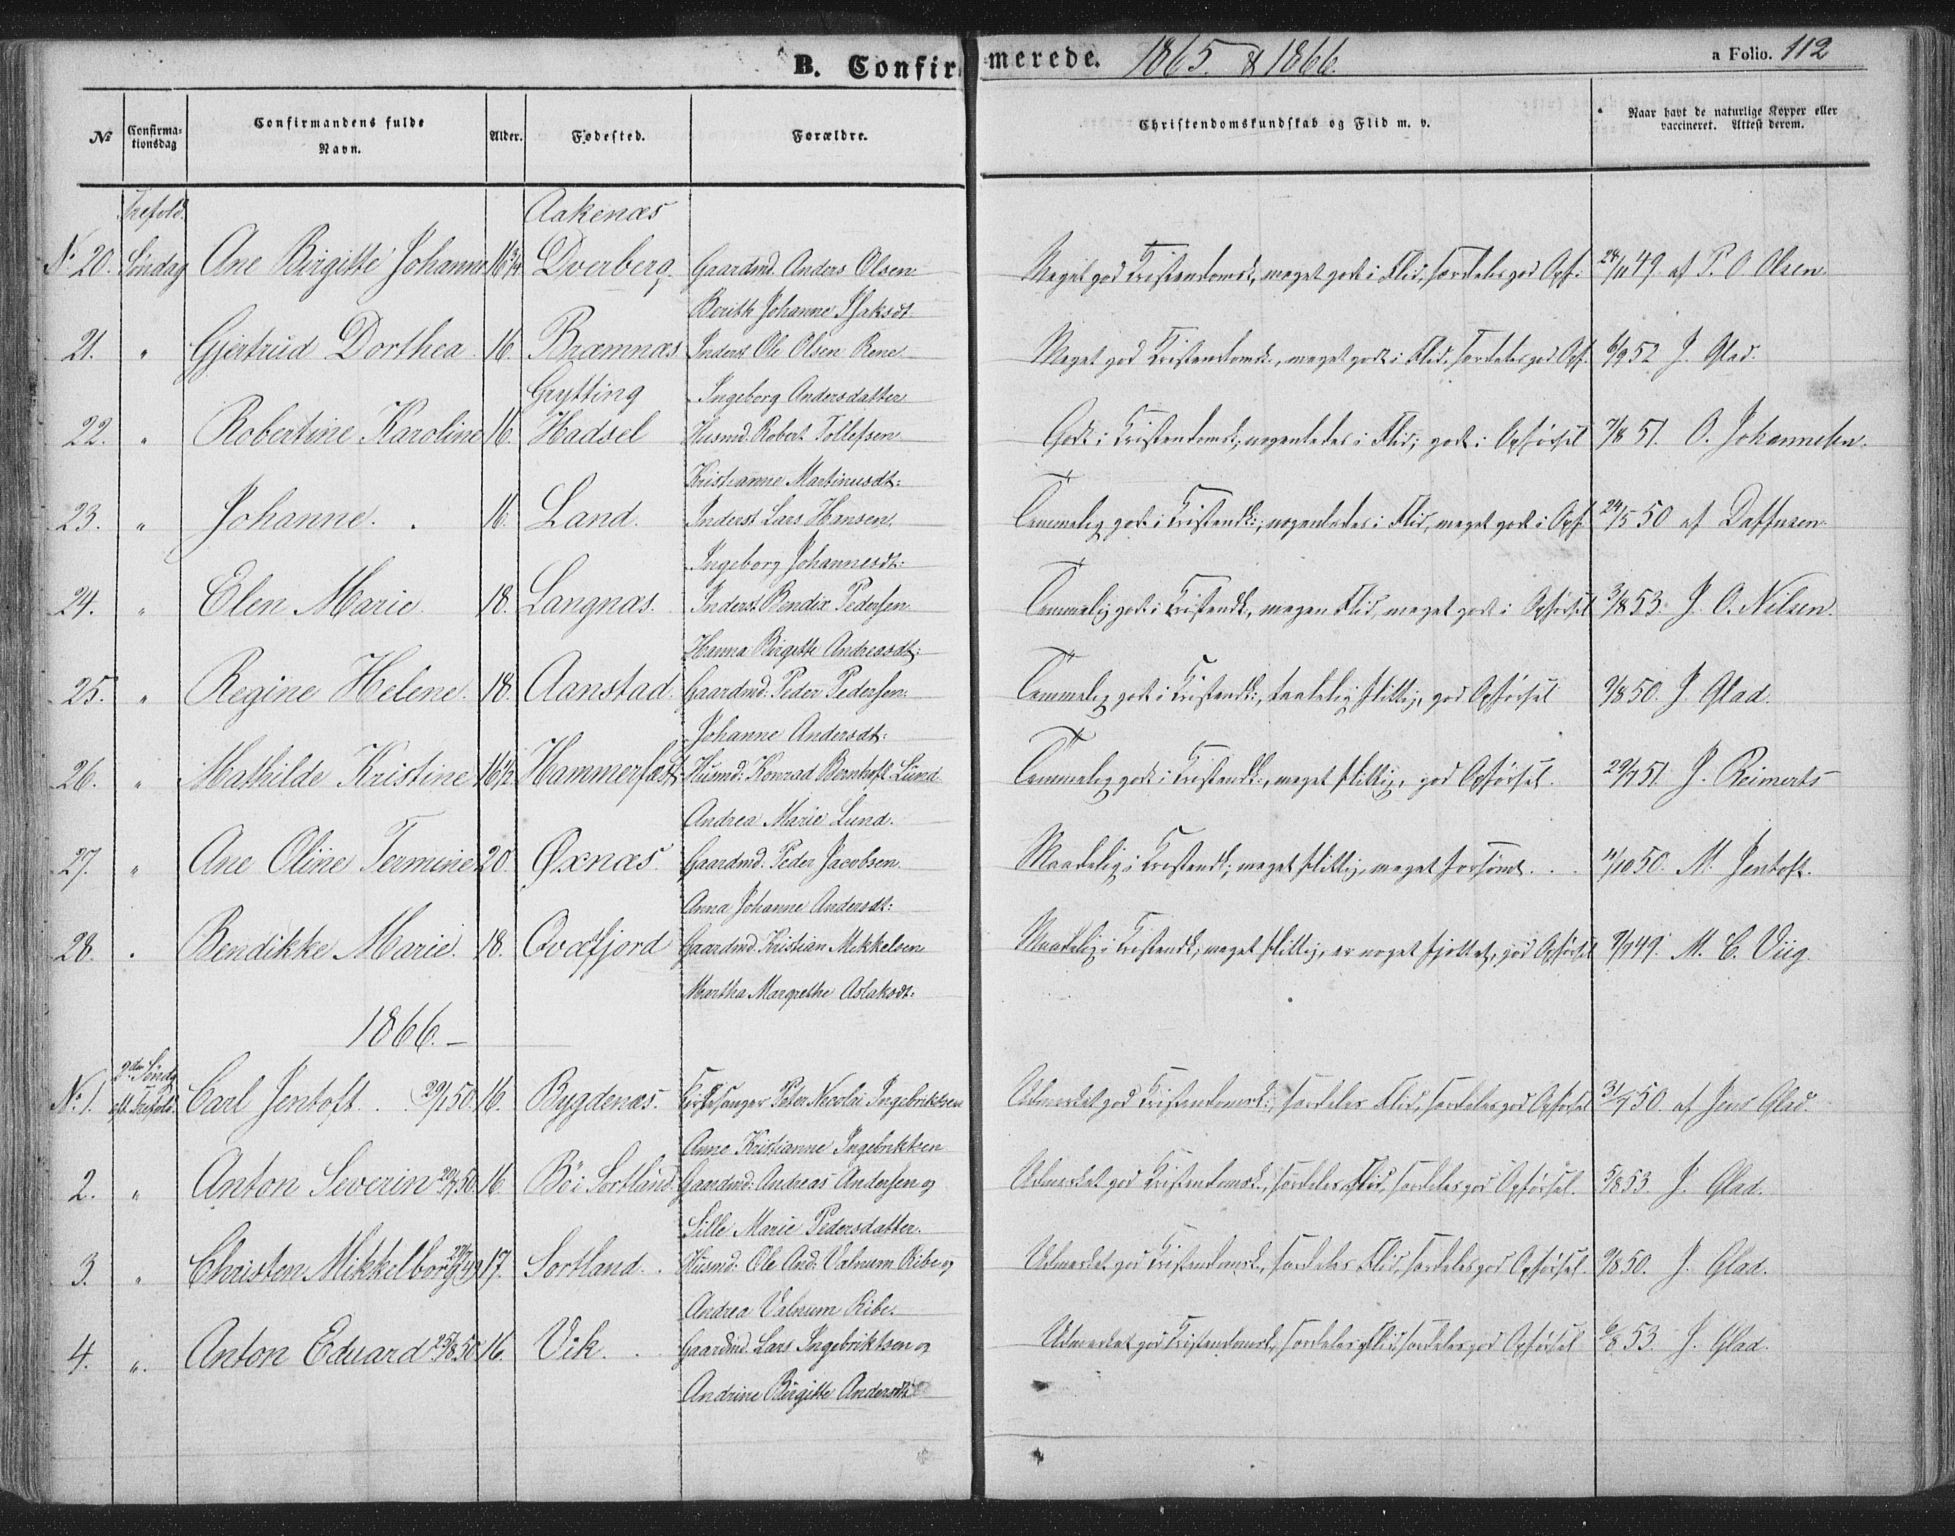 B. Confirmerede. 1865. & 1866.
a Folio. 112
No
Confirmationsdag
Confirmandens fulde Navn.
Alder.
Fødested.
Forældre.
Christendomskundskab og Flid m. v.
Naar havt de naturlige Kopper eller vaccineret. Attest derom.
Trefold. Aakenæs
No 20. Søndag Ane Birgitte Johanna 16 3/4 Dverberg Gaardmd. Anders Olsen Meget god Kristendomsk., meget godt i Flid, særdeles god Opf. 24/11 49. af P. O. Olsen
Berith Johanne Isaksdt.
21. " Gjertrud Dorthea 16. Bræmnæs Inderst Ole Olsen Rene Meget god Kristendomsk., meget godt i Flid, særdeles god Opf. 6/9 52. J. Glad.
Grytting Ingeborg Andersdatter
22. " Robertine Karoline 16. Hadsel Husmd. Robert Tollefsen Godt i Kristendomsk., nogenledes i Flid, godt i Opførsel 7/8 51. O. Johannesen.
Kristianne Martinusdt:
23. " Johanne. 16. Land. Inderst Lars Hansen Temmelig godt i Kristendk., nogenledes i Flid, meget godt i Opf. 24/5 50 af
Ingeborg Johannesdt:
24. " Elen Marie 18. Langnæs. Inderst Bendix Pedersen Temmelig godt i Kristendk., megen Flid, meget godt i Opførsel 3/8 53. J. O. Nilsen.
Hanna Birgitte Andreasdt:
25. " Regine Helene. 18. Aanstad. Gaardmd. Peder Pedersen Temmelig godt i Kristendk., taalelig flittig, god Opførsel 9/8 50. J. Glad.
Johanne Andersdt:
26. " Mathilde Kristine 16 1/2 Hammerfæst: Husmd: Konrad Bernhoft Lund Temmelig godt i Kristendk., meget flittig, god Opførsel. 29/7 51. J. Reimerts
Andrea Marie Lund.
27. " Ane Oline Termine 20. Øxnæs. Gaardmd. Peder Jacobsen Maadelig i Kristendk., meget flittig, meget forsømt. . . 11/10 50. M. Jentoft.
Anna Johanne Andersdt:
28. " Bendikke Marie. 18. Qvæfjord Gaardmd. Kristian Mikkelsen Maadelig i Kristendk., meget flittig, er noget god Opførsel 9/9 49. M. C. Viig
Martha Margrethe Aslaksdt:
1866. –
2den Sønd.
No 1. eft. Trefold. Carl Jentoft. . 29/1 50. 16. Bygdenæs. Kirkesanger Peter Nicolai Ingebriktsen Udmerket god Kristendomsk., særdeles Flid, særdeles god Opførsel 31/7 50. af Jens Glad.
Anne Kristianne Ingebriktsen
2. " Anton Severin 20/7 50. 16. Bö i Sortland. Gaardmd: Andreas Andersen og Udmerket god Kristendomsk., særdeles Flid, særdeles god Opførsel. 5/8 53. J. Glad.
Sille Marie Pedersdatter.
3. " Christen Mikkelborg 27/7 49. 17. Sortland. . Husmd: Ole And: Valnum Ribe og Udmerket god Kristendomsk., særdeles Flid, særdeles god Opførsel. 9/8 50. J. Glad.
Andrea Valnum Ribe.
4. " Anton Eduard 25/8 50. 16. Vik. . . Gaardmd. Lars Ingebriktsen og Udmerket god Kristendomsk., særdeles Flid, særdeles god Opførsel 6/8 53. J. Glad.
Andrine Birgitte Andersdt.